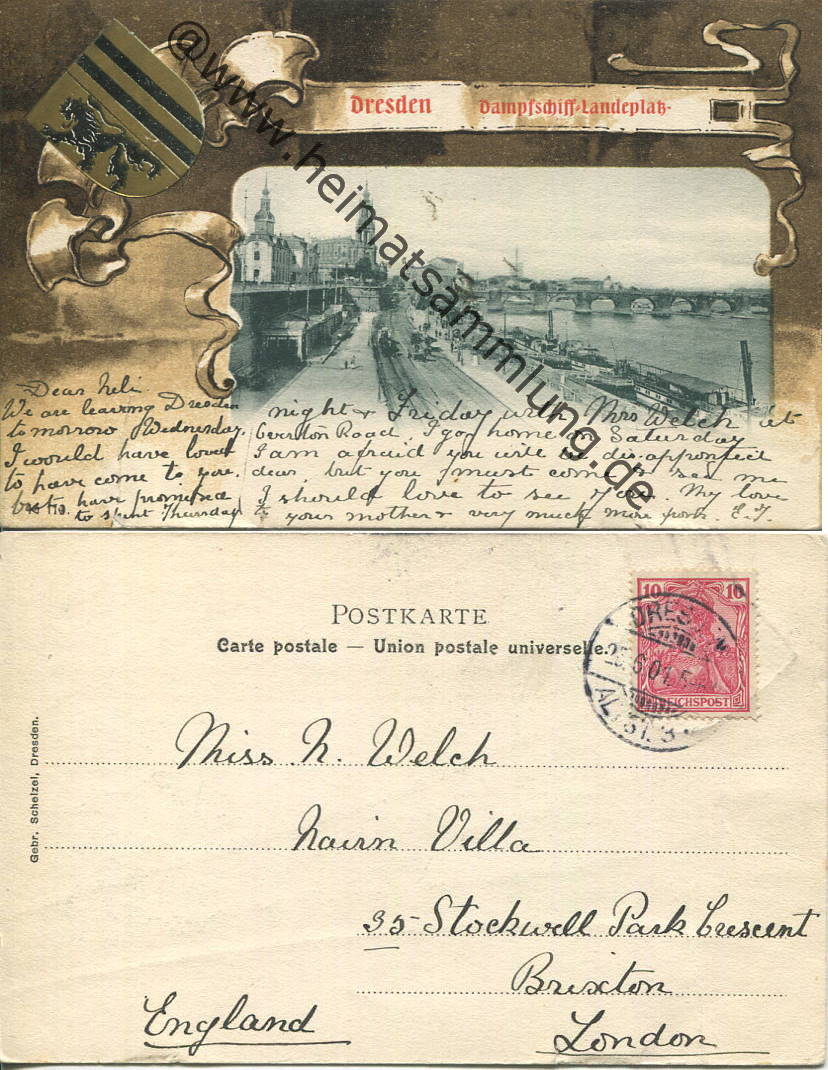 Dresden Dampfschiff-Landeplatz.
@www.heimatsammlung.de
Dear Neli
We are leaving Dresden
tomorrow Wednesday.
I would have loved
to have come to you,
but have promised
to spent Thursday
night & Friday with Mrs Welch at
Road. I go home on Saturday
I am afraid you will be disappointed
dear, but you must come to see me
I should love to see you. My love
to your mother & very much more for E.T.
POSTKARTE
Carte postale — Union postale universelle.
10 10
REICHSPOST
DRESDEN
6.01. 5-
ALTST. 3
Gebr. Schelzel, Dresden.
Miss N. Welch
Nairn Villa
35 Stockwell Park Crescent
Brixton
England
London